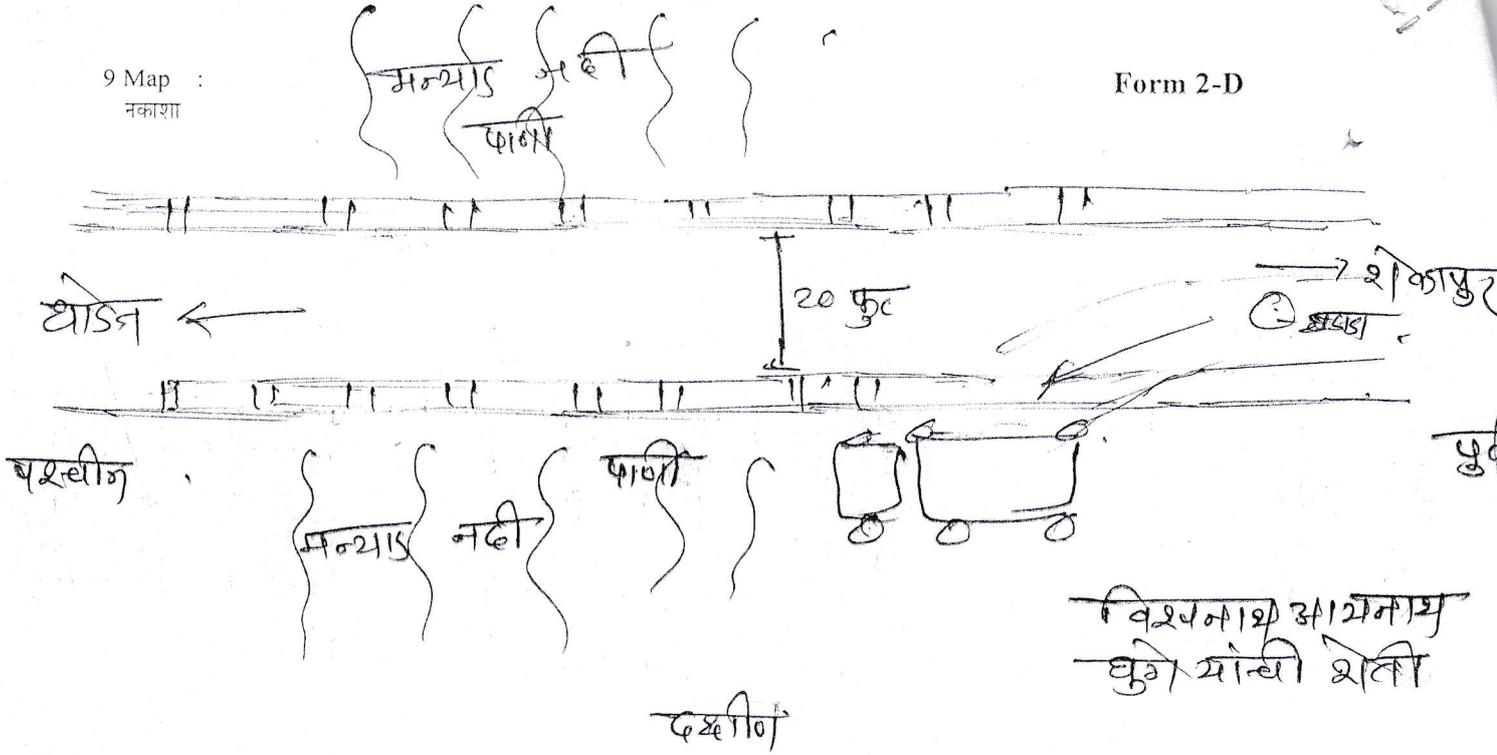 9 Map :
नकाशा
Form 2-D
मन्याड नदी
पाणी
२० फुट
शेकापुर
पश्चीम
पाणी
मन्याड नदी
विश्वनाथ
घुगे यांची शेती
दक्षीण